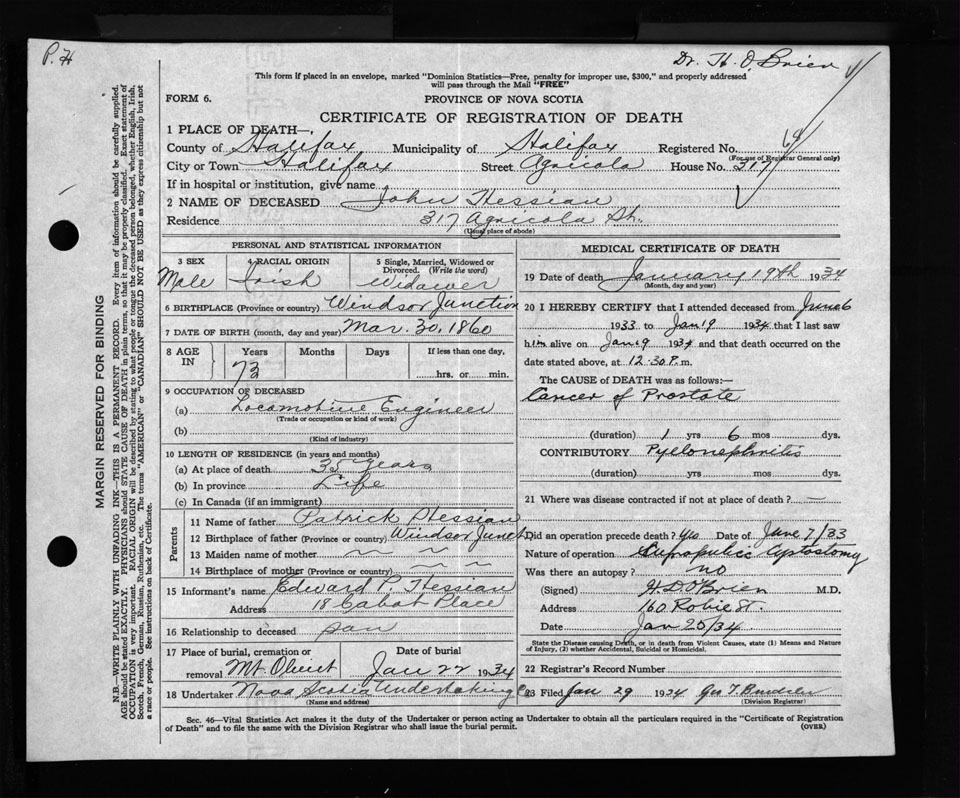 P. H
Dr. H. O'Brien
This form if placed in an envelope, marked "Dominion Statistics—Free, penalty for improper use, $300," and properly addressed
will pass through the Mail "FREE"
FORM 6.
PROVINCE OF NOVA SCOTIA
CERTIFICATE OF REGISTRATION OF DEATH
1 PLACE OF DEATH—
County of Halifax Municipality of Halifax Registered No.
(For use of Registrar General only)
City or Town Halifax Street Agricola House No. 317
If in hospital or institution, give name
2 NAME OF DECEASED John Hessian
Residence 317 Agricola St.
(Usual place of abode)
PERSONAL AND STATISTICAL INFORMATION
3 SEX 4 RACIAL ORIGIN 5 Single, Married, Widowed or
Divorced. (Write the word)
Male Irish Widawer
6 BIRTHPLACE (Province or country) Windsor Junction
7 DATE OF BIRTH (month, day and year) Mar. 30, 1860
8 AGE IN Years Months Days If less than one day,
73 hrs. or min.
9 OCCUPATION OF DECEASED
(a) Locomotive Engineer
(Trade or occupation or kind of work)
(b)
(Kind of industry)
10 LENGTH OF RESIDENCE (in years and months)
(a) At place of death 35 years
(b) In province Life
(c) In Canada (if an immigrant)
Parents
11 Name of father Patrick Hessian
12 Birthplace of father (Province or country) Windsor Junct
13 Maiden name of mother ~ ~ ~
14 Birthplace of mother (Province or country) ~ ~
15 Informant's name Edward P. Hessian
Address 18 Cabot Place
16 Relationship to deceased son
17 Place of burial, cremation or removal Mt Olivet Date of burial Jan 22 1934
18 Undertaker Nova Scotia Undertaking Co
(Name and address)
MEDICAL CERTIFICATE OF DEATH
19 Date of death January 19th 1934
(Month, day and year)
20 I HEREBY CERTIFY that I attended deceased from June 6
1933 to Jan 19 1934 that I last saw
him alive on Jan 19 1934 and that death occurred on
date stated above, at 12.30 P. m.
The CAUSE of DEATH was as follows:—
Cancer of Prostate
(duration) 1 yrs 6 mos dys.
CONTRIBUTORY Pyelonephritis
(duration) yrs mos dys.
21 Where was disease contracted if not at place of death? —
Did an operation precede death? yes Date of June 7/33
Nature of operation Suprapubic Cystostomy
Was there an autopsy? no
(Signed) H. D. O'Brien M.D.
Address 160 Robie St.
Date Jan 20/34
State the Disease causing Death, or in death from Violent Causes, state (1) Means and Nature of
Injury, (2) whether Accidental, Suicidal or Homicidal.
22 Registrar's Record Number
23 Filed Jan 29 1934 Geo T.
(Division Registrar)
Sec. 46—Vital Statistics Act makes it the duty of the Undertaker or person acting as Undertaker to obtain all the particulars required in the "Certificate of Registration
of Death" and to file the same with the Division Registrar who shall issue the burial permit.
(OVER)
MARGIN RESERVED FOR BINDING
N.B.—WRITE PLAINLY WITH UNFADING INK—THIS IS A PERMANENT RECORD. Every item of information should be carefully supplied.
AGE should be stated EXACTLY. PHYSICIANS should STATE CAUSE OF DEATH in plain terms, so that it may be properly classified. Exact statement of
OCCUPATION is very important. RACIAL ORIGIN will be described by stating to what people or tongue the deceased person belonged, whether English, Irish,
Scotch, French, German, Russian, Ruthenian, etc. The terms "AMERICAN" or "CANADIAN" SHOULD NOT BE USED as they express citizenship but not
a race or people. See instructions on back of Certificate.